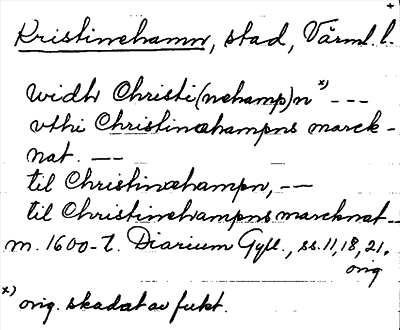 +
Kristinehamn, stad, Värml. l.
widh Christi(nehamp)n x) ---
vthi Christinæhampns marck-
nat. --
til Christinæhampn, --
til Christinehampns marcknat --
m. 1600-t. Diarium Gyll., ss. 11, 18, 21.
orig
x) orig. skadat av fukt.